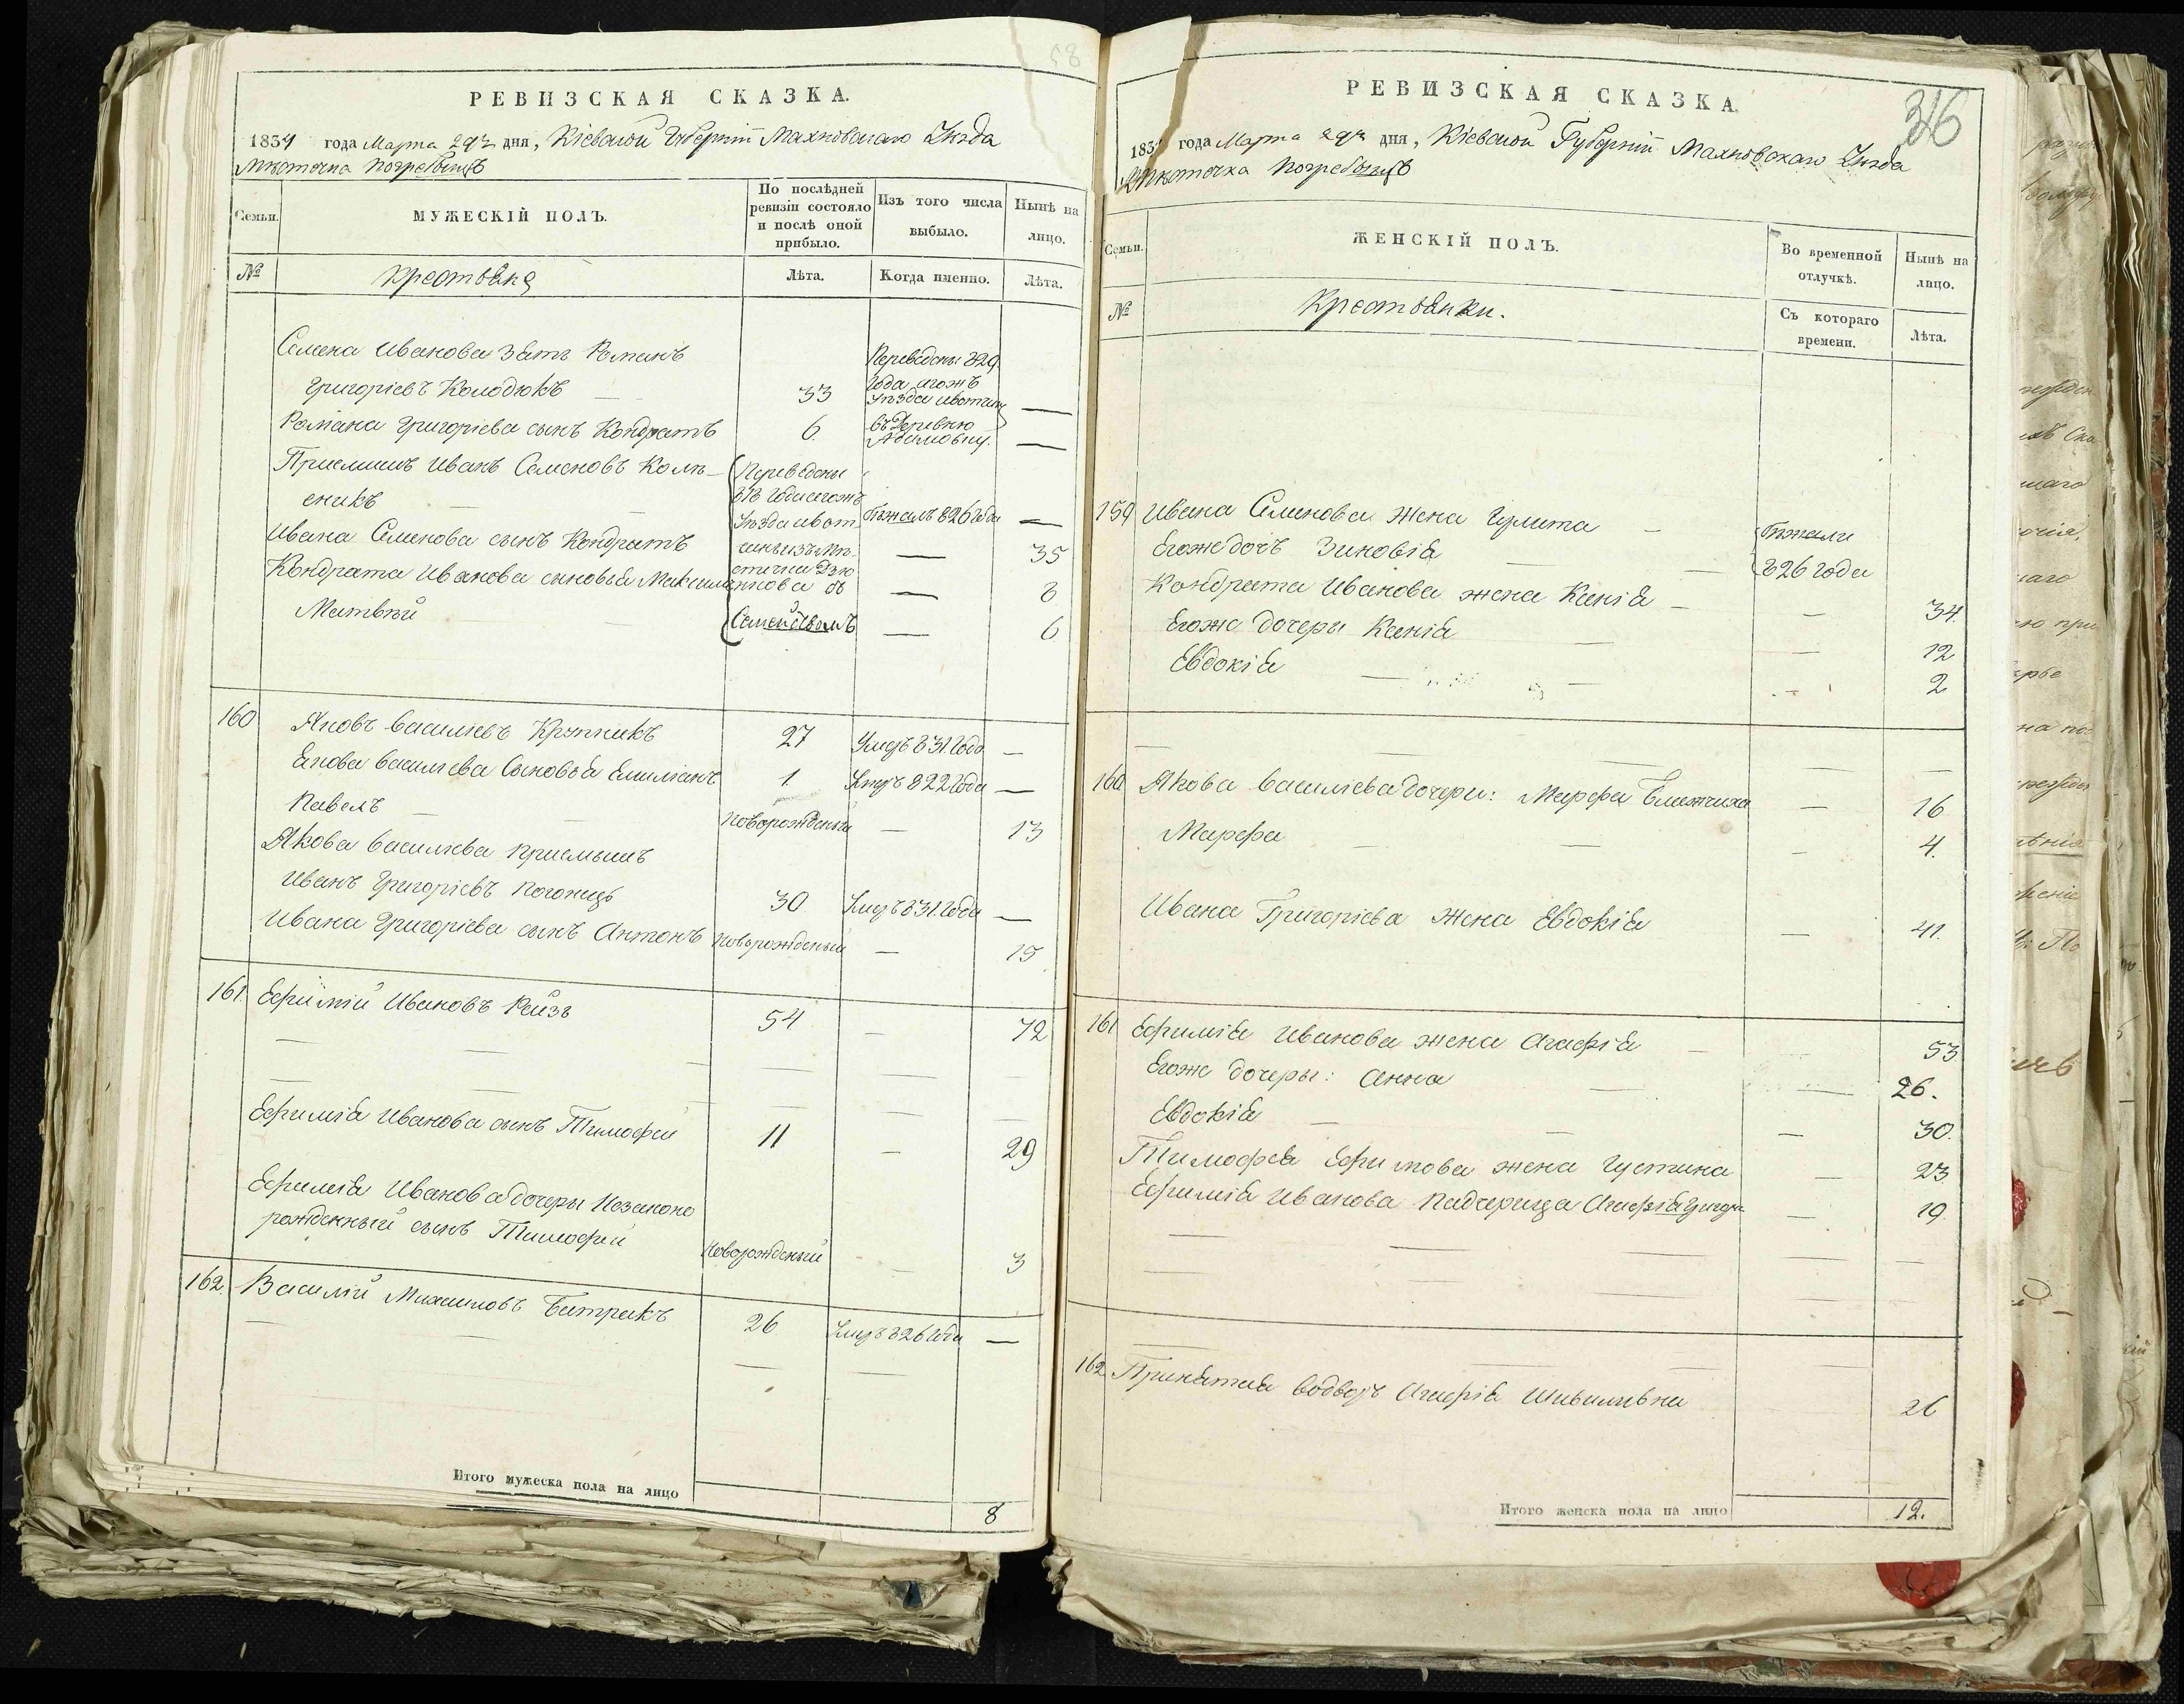 58
РЕВИЗСКАЯ СКАЗКА.
1834 года Марта 29го дня, Кіевской Губерніи Махновскаго Уѣзда
Мѣсточка Погребыщъ
Семьи.
МУЖЕСКІЙ ПОЛЪ.
По послѣдней ревизіи состояло и послѣ оной прибыло.
Изъ того числа выбыло.
Нынѣ на лицо.
№
Крестьяне
Лѣта.
Когда именно.
Лѣта.
Семена Иванова Зять Романъ
Григоріевъ Колодюкъ 33
Переведены 829
Года тогожъ
Уѣзда
въ Деревню
Романа Григоріева сынъ Кондратъ 6.
Приемышъ Иванъ Семеновъ Колѣ-
сникъ Бѣжалъ 826 Года
Переведены
818 Года тогожъ
Уѣзда
Семействомъ
Ивана Семенова сынъ Кондратъ 35
Кондрата Иванова сыновья Максимъ 8
Матвѣй 6
160 Яковъ Василіевъ Крупникъ 27 Умеръ 831 Года
Якова Василіева Сыновья Емиліанъ 1. Умеръ 822 Года
Павелъ Новорожденый 13
Якова Василіева приемышъ
Иванъ Григоріевъ Погонецъ 30 Умеръ 831 Года
Ивана Григоріева сынъ Антонъ Новорожденый 15
161. Ефимій Ивановъ Реизъ 54 72
Ефимія Иванова сынъ Тимофей 11 29
Ефимія Иванова дочеры Незаконо
рожденный сынъ Тимофей Новорожденый 3
162 Василій Михаиловъ Батракъ 26 Умеръ 826 Года
Итого мужеска пола на лицо 8
316
РЕВИЗСКАЯ СКАЗКА.
1834 года Марта 29го дня, Кіевской Губерніи Махновскаго Уѣзда
Мѣсточка Погребыщъ
Семьи.
ЖЕНСКІЙ ПОЛЪ.
Во временной отлучкѣ.
Нынѣ на лицо.
№
Крестьянки.
Съ котораго времени.
Лѣта.
159 Ивана Семенова жена Гулита Бѣжали
Егожъ дочь Зиновія 826 Года
Кондрата Иванова жена Ксенія 34.
Егоже дочеры Ксенія 12
Евдокія 2
160 Якова Василіева дочери: Марфа Ближчиха 16
Марфа 4.
Ивана Григоріева Жена Евдокія 41.
161 Ефимія Иванова жена Агафія 53
Егоже дочеры: Анна 26.
Евдокія 30.
Тимофея Ефимова жена Густина 23
Ефимія Иванова Падчерица Агафія 19
162 Принятая водворъ Агафія 26
Итого женска пола на лицо 12.